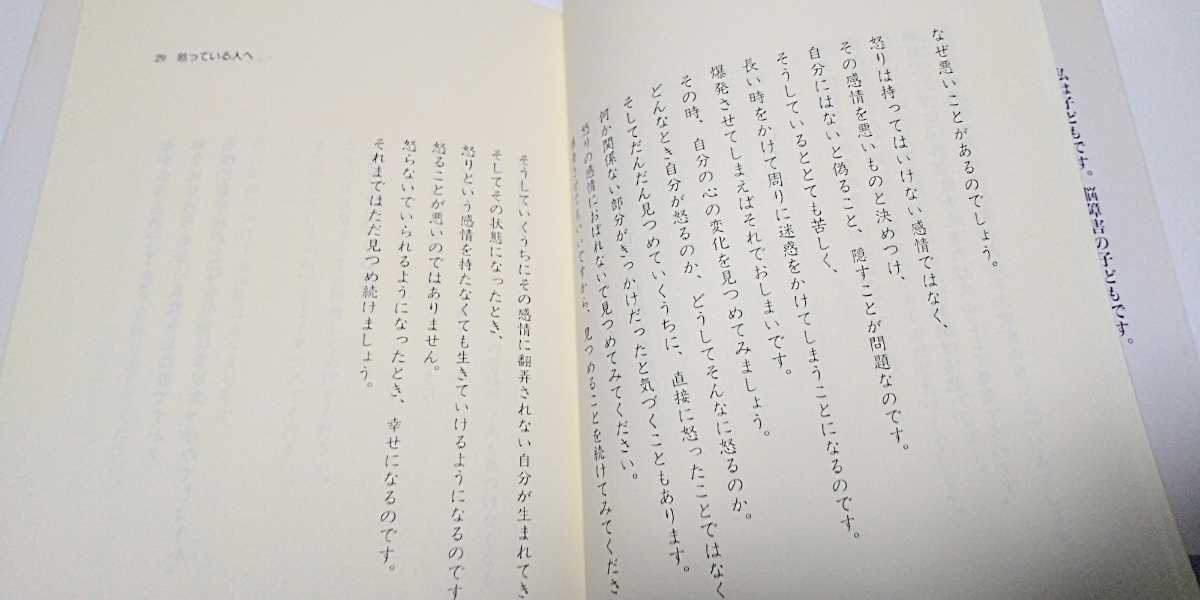 私は子どもです。脳障害の子どもです。
なぜ悪いことがあるのでしょう。
怒りは持ってはいけない感情ではなく、
その感情を悪いものと決めつけ、
自分にはないと偽ること、隠すことが問題なのです。
そうしているととても苦しく、
長い時をかけて周りに迷惑をかけてしまうことになるのです。
爆発させてしまえばそれでおしまいです。
その時、自分の心の変化を見つめてみましょう。
どんなとき自分が怒るのか、どうしてそんなに怒るのか。
そしてだんだん見つめていくうちに、直接に怒ったことではなく
何か関係ない部分がきっかけだったと気づくこともあります。
怒りの感情におぼれないで見つめてみてください。
いいですから、見つめることを続けてみてくださ
29 怒っている人へ
そうしていくうちにその感情に翻弄されない自分が生まれてき
そしてその状態になったとき、
怒りという感情を持たなくても生きていけるようになるのです
怒ることが悪いのではありません。
怒らないでいられるようになったとき、幸せになるのです。
それまではただ見つめ続けましょう。